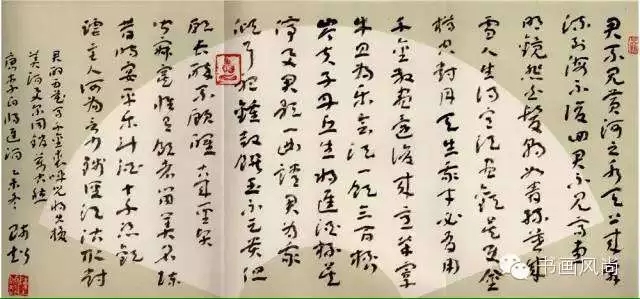 君不见黄河之水天上来奔
流到海不复回君不见高堂
明镜悲白发朝如青丝暮成
雪人生得意须尽欢莫使金
樽空对月天生我才必有用
千金散尽还复来烹羊宰
牛且为乐会须一饮三百杯
岑夫子丹丘生将进酒杯莫
停与君歌一曲请君为我
倾耳听钟鼓馔玉不足贵但
愿长醉不愿醒古来圣贤
皆寂寞惟有饮者留其名陈
昔时宴平乐斗酒十千恣欢
谑主人何为言少钱径须沽取对
君酌五花马千金裘呼儿将出换
美酒与尔同销万古愁
唐李白将进酒 乙未冬
书画风尚